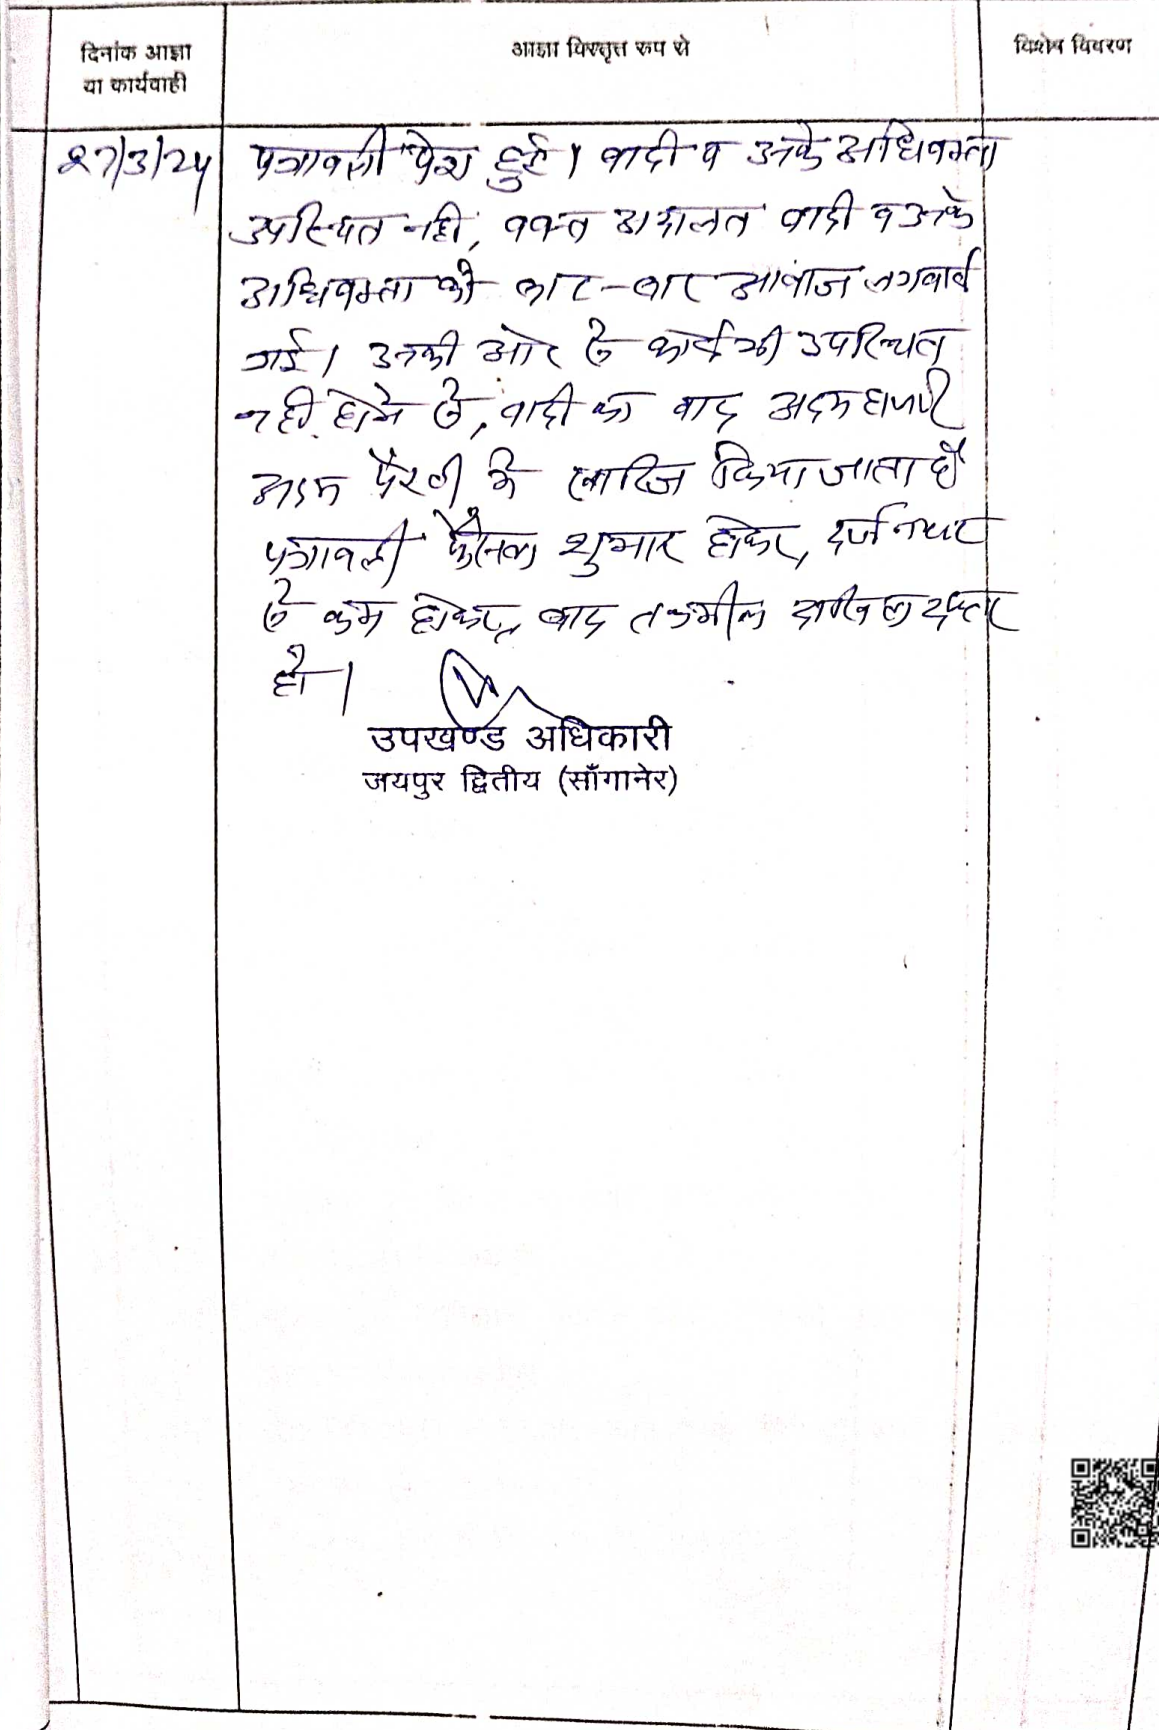 दिनांक आज्ञा
या कार्यवाही
आज्ञा विस्तृत रुप से
विशेष विवरण
27/3/24 पत्रावली पेश हुई। वादी व उनके अधिवक्ता
उपस्थित नही, वक्त अदालत वादी व उनके
अधिवक्ता को बार-बार आवाज लगवाई
गई। उनकी ओर से कोई भी उपस्थित
नही होने से, वादी का वाद अदम हाजरी
अदम पैरवी मे खारिज किया जाता है
पत्रावली फैसल शुमार होकर, दर्ज नम्बर
से कम होकर, बाद तकमील दाखिल दफ्तर
हो।
उपखण्ड अधिकारी
जयपुर द्वितीय (साँगानेर)